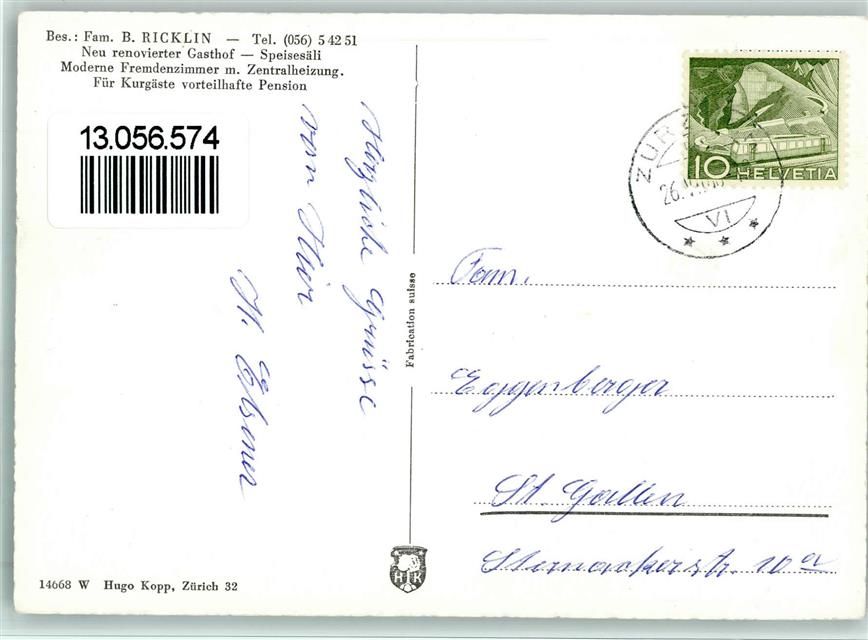 Bes.: Fam. B. RICKLIN — Tel. (056) 5 42 51
Neu renovierter Gasthof — Speisesäli
Moderne Fremdenzimmer m. Zentralheizung.
Für Kurgäste vorteilhafte Pension
13.056.574
Herzliche Grüsse
von Hier
H. Elsener
Fabrication suisse
14668 W Hugo Kopp, Zürich 32
HK
10 HELVETIA
26.
VI
Fam.
Eggenberger
St. Gallen
Sternackerstr. 10a